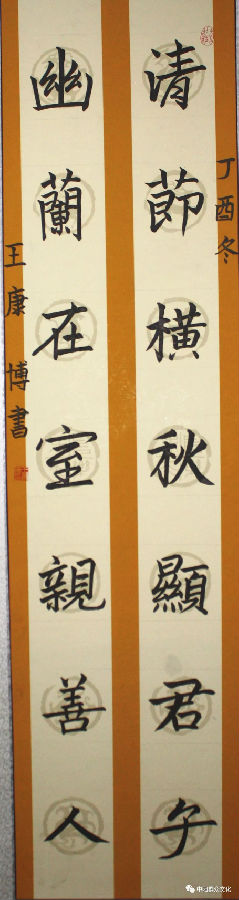 丁酉冬
清節横秋顯君子
幽蘭在室親善人
王康博書
群众文化